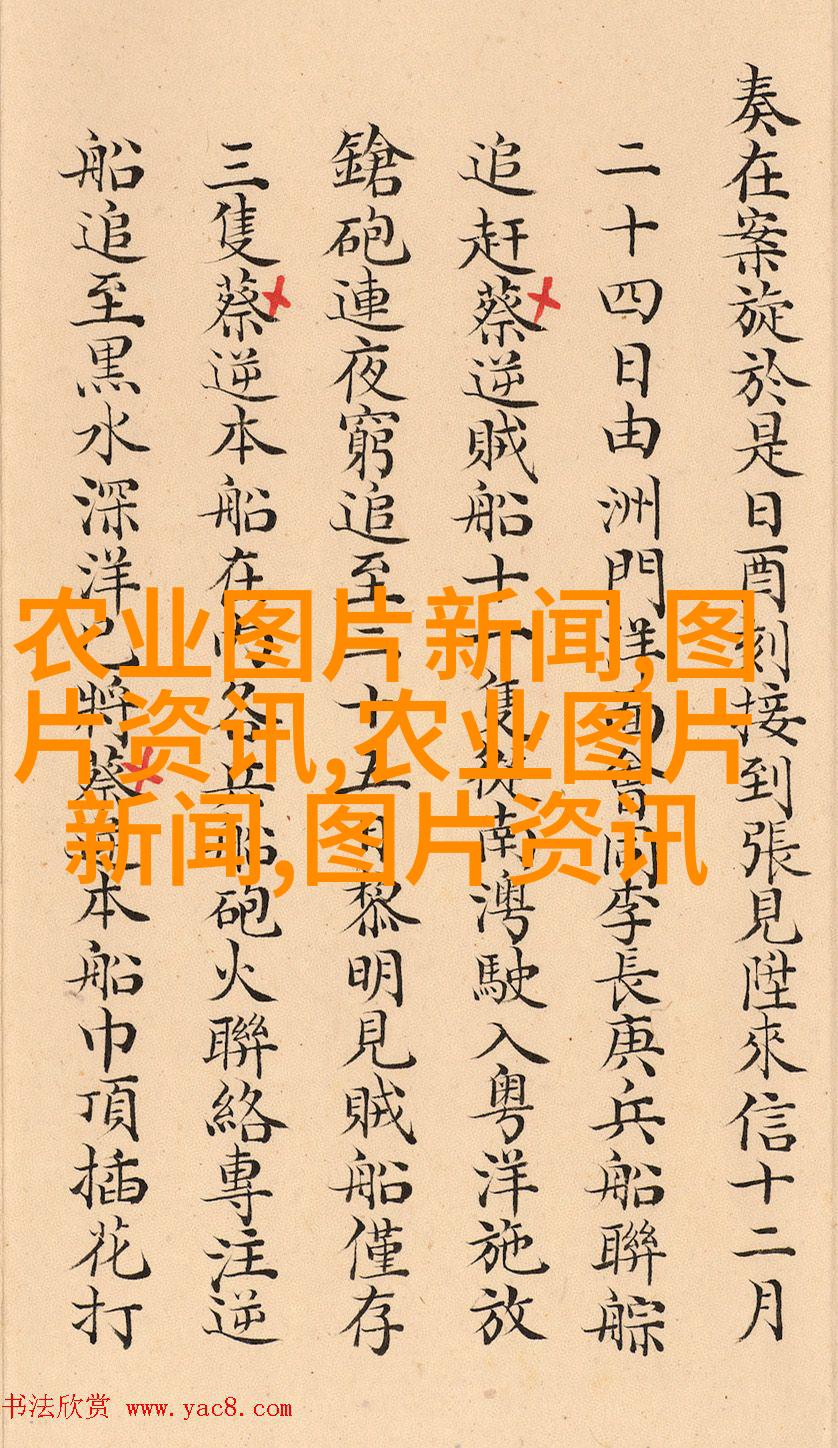 奏在案旋於是日酉刻接到張見陞來信十二月
二十四日由洲門洋面會同李長庚兵船聯䑸
追赶蔡逆賊船十一隻從南澳駛入粤洋施放
鎗砲連夜窮追至二十五日黎明見賊船僅存
三隻蔡逆本船在內各兵船砲火聯絡專注逆
船追至黒水深洋已將蔡逆本船巾頂插花打
农业图片新闻,图
片资讯,农业图片
新闻,图片资讯
书法欣赏 www.yac8.com